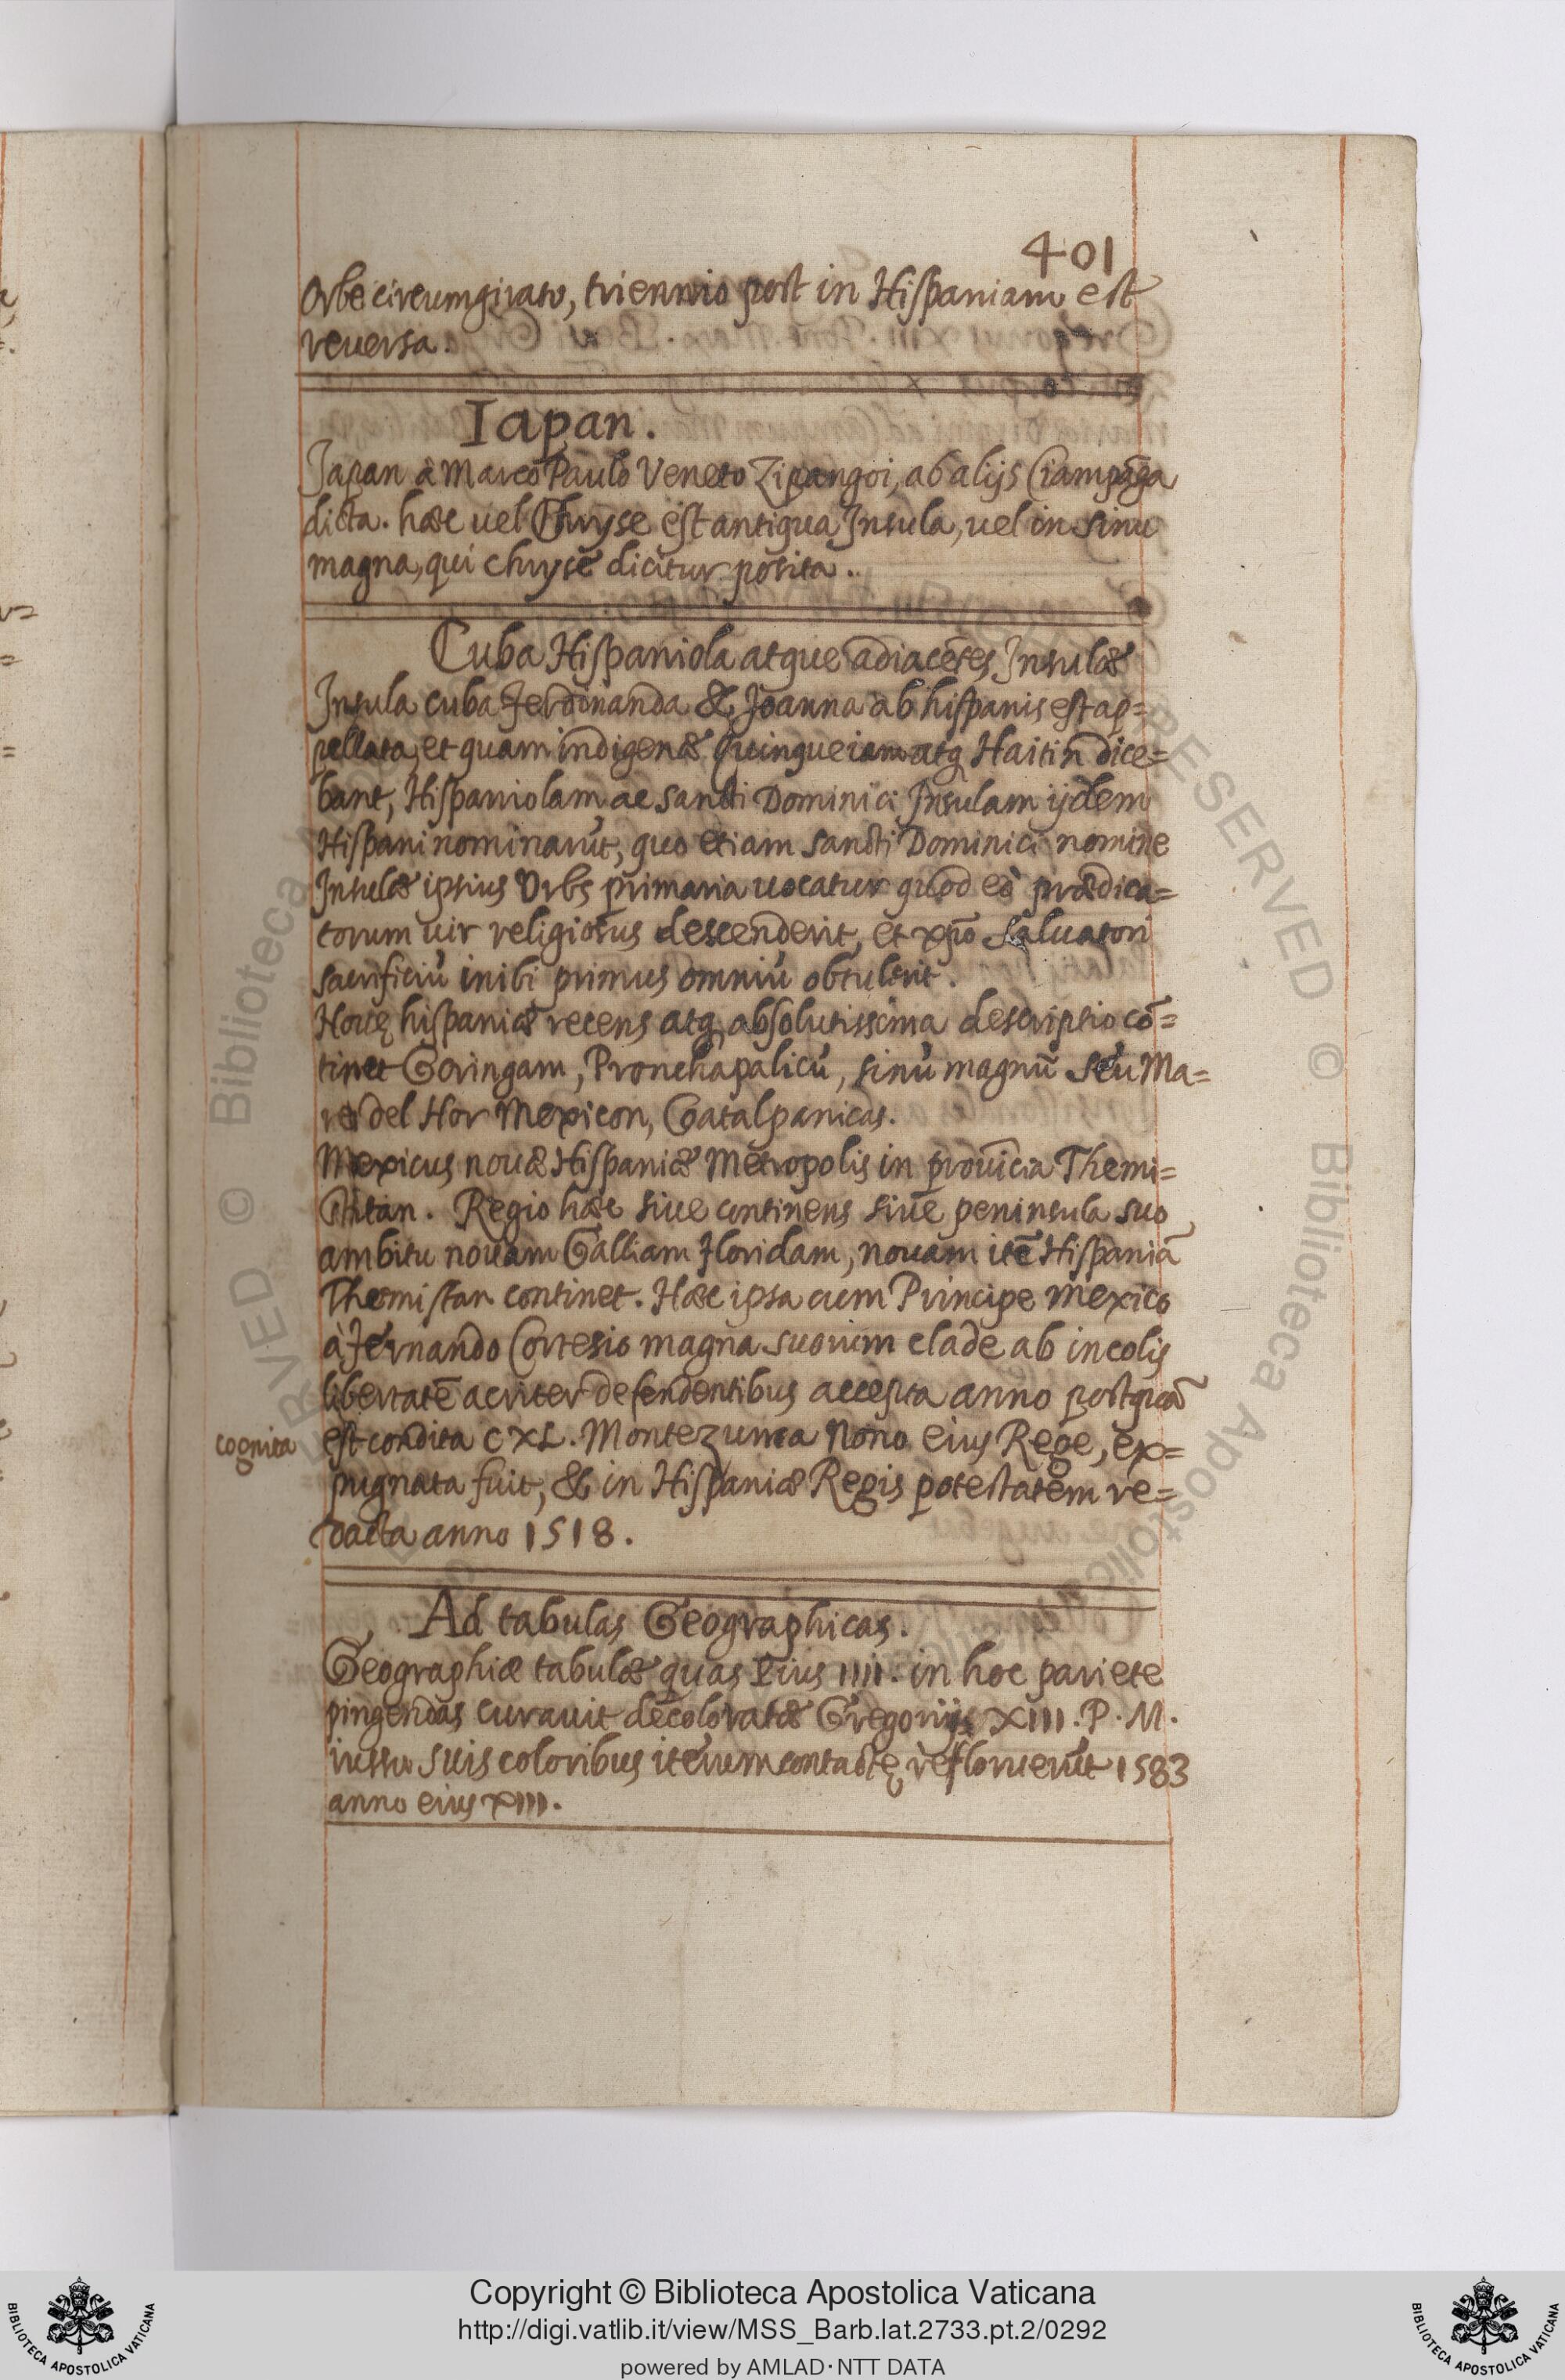 401
Orbe circumgirato, triennio post in Hispaniam est
reuersa.
Iapan.
Japan à Marco Paulo Veneto Zipangoi, ab alijs Ciampāga
dicta. hæc uel Chryse est antiqua Insula, uel in sinu
magna, qui chryse dicitur posita..
Cuba Hispaniola atque adiacētes Insulæ
Insula cuba Ferdinanda & Joanna ab hispanis est ap=
pellata, et quam indigenæ Quinqueiam atq Haitin dice=
bant, Hispaniolam ac Sancti Dominici Insulam ijdem
Hispani nominarūt, quo etiam Sancti Dominici nomine
Insulæ ipsius Vrbs primaria uocatur quod eò prædica=
torum uir religiosus descenderit, et xpō Saluatori
sacrificiū inibi primus omniū obtulerit.
Nouę hispaniæ recens atq absolutissima descriptio cō=
tinet Goringam, Pronchapalicū, sinū magnū seu Ma=
re del Nor Mexicon, Gatalpanicas.
Mexicus nouæ Hispaniæ Metropolis in prouīcia Themi=
stitan. Regio hæc siue continens siue peninsula suo
ambitu nouam Galliam Floridam, nouam itē Hispaniā
Themistan continet. Hæc ipsa cum Principe Mexico
à Fernando Cortesio magna suorum clade ab incolis
libertatē acriter defendentibus accepta anno postquā
cognita
est condita CXL. Montezuma Nono eius Rege, ex=
pugnata fuit, & in Hispaniæ Regis potestatem re=
dacta anno 1518.
Ad tabulas Geographicas.
Geographiæ tabulæ quas Pius IIII. in hoc pariete
pingendas curauit decoloratæ Gregorijs XIII. P. M.
iussu suis coloribus iterum contactę refloruerūt 1583
anno eius XIII.
© Biblioteca Apostolica
RESERVED © Biblioteca Apostolica
BIBLIOTECA APOSTOLICA VATICANA
Copyright © Biblioteca Apostolica Vaticana
http://digi.vatlib.it/view/MSS_Barb.lat.2733.pt.2/0292
powered by AMLAD·NTT DATA
BIBLIOTECA APOSTOLICA VATICANA